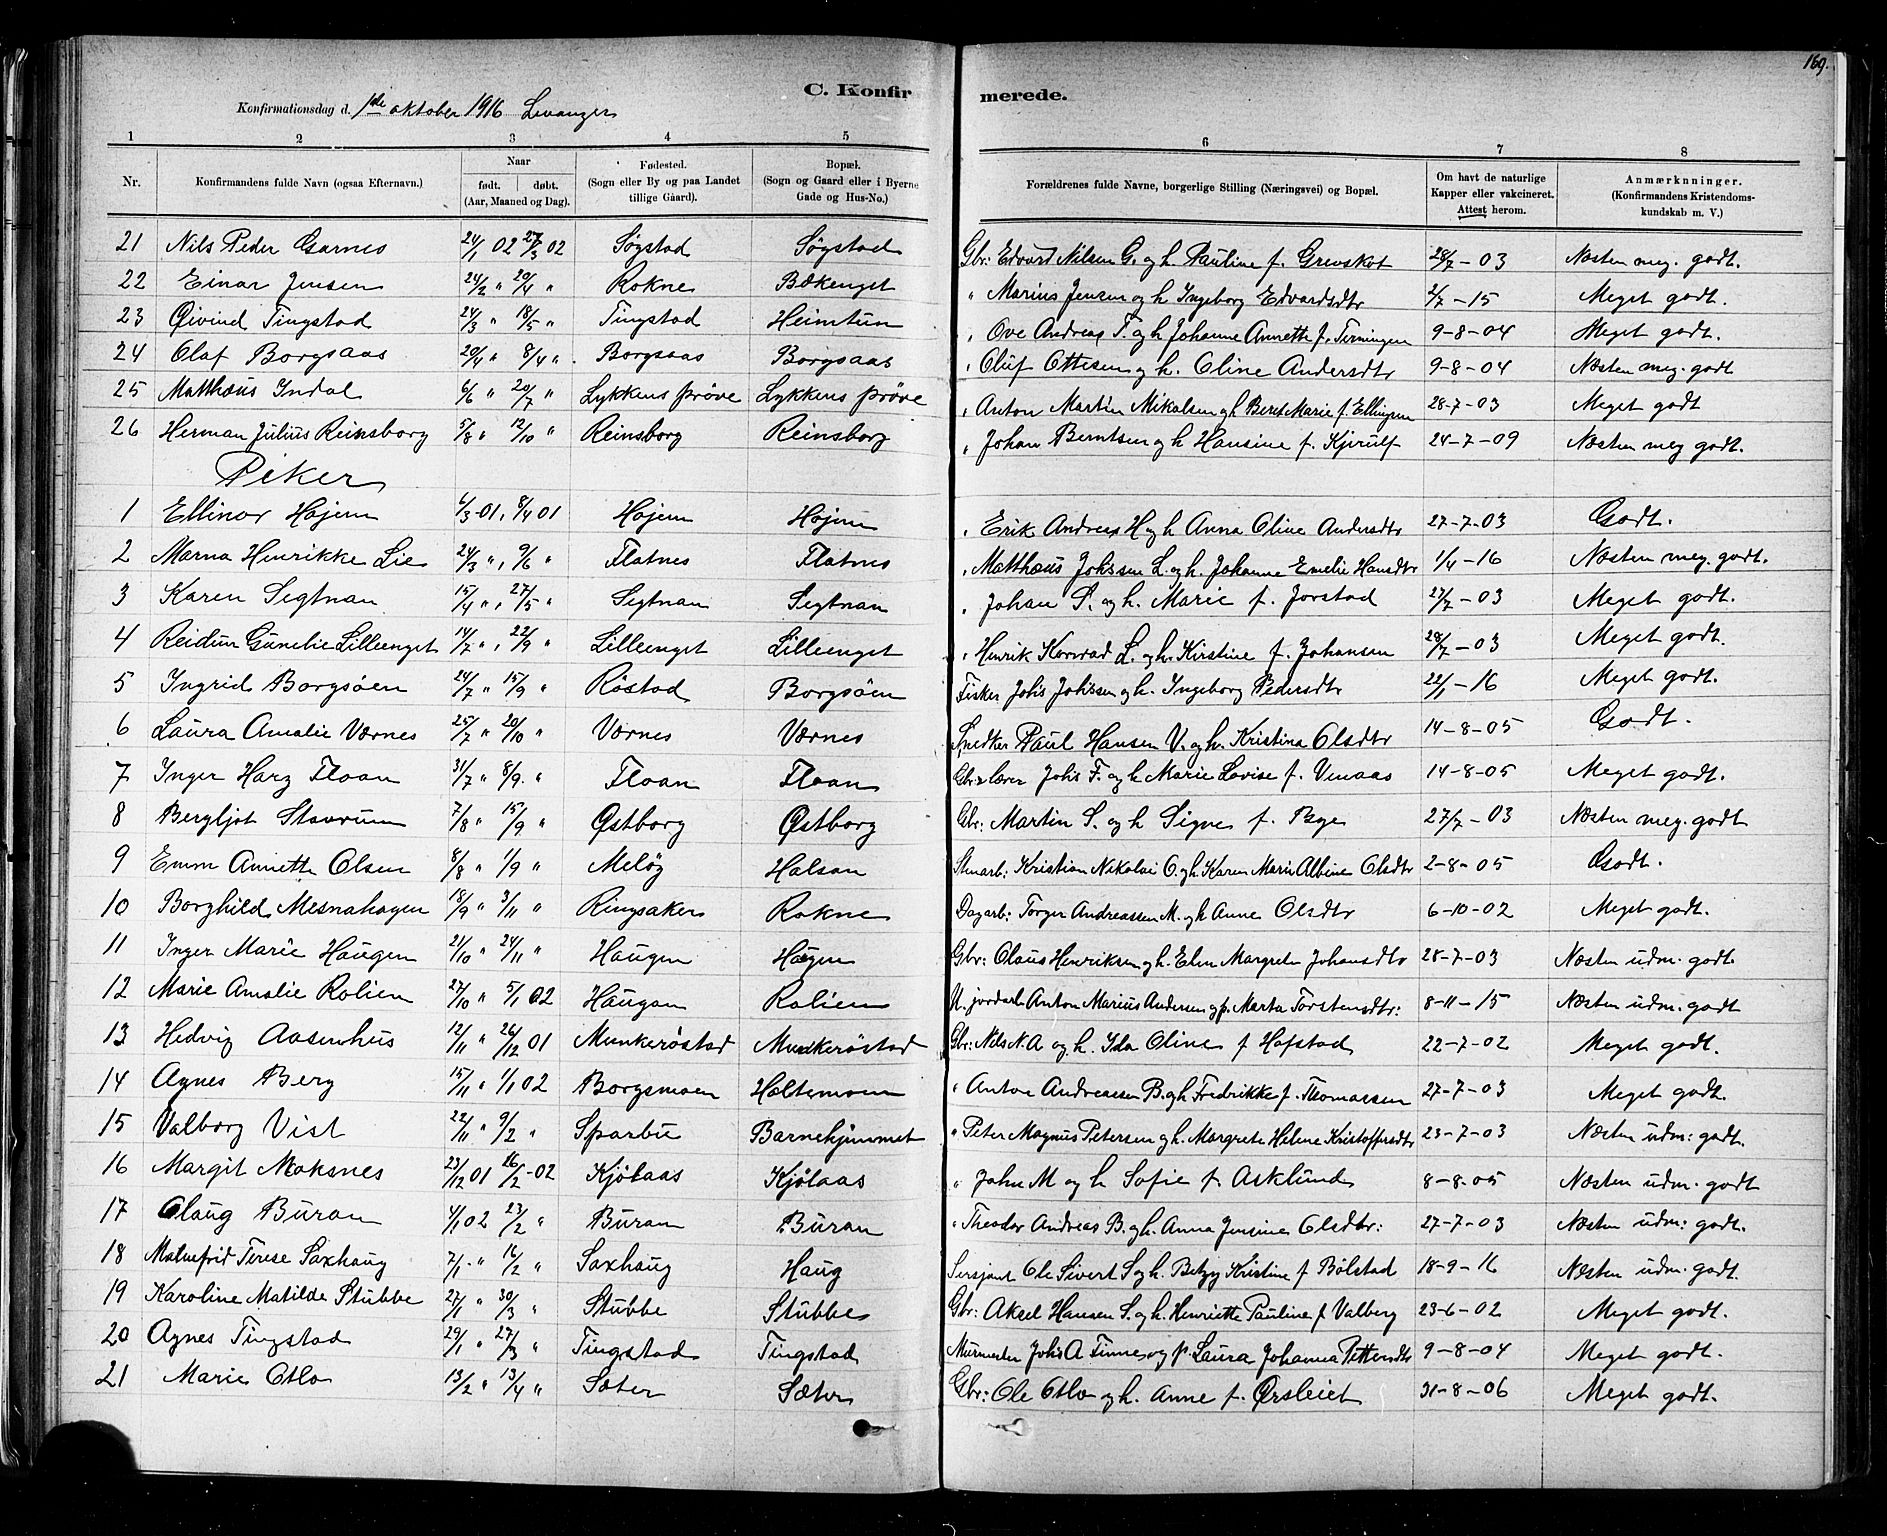 169.
C. Konfirmerede.
Konfirmationsdag d. 1de oktober 1916 Levanger
1 2 3 4 5 6 7 8
Nr. Konfirmandens fulde Navn (ogsaa Efternavn.) Naar født. døbt. (Aar, Maaned og Dag). Fødested. (Sogn eller By og paa Landet tillige Gaard). Bopæl. (Sogn og Gaard eller i Byerne Gade og Hus-No.) Forældrenes fulde Navne, borgerlige Stilling (Næringsvei) og Bopæl. Om havt de naturlige Kapper eller vakcineret. Attest herom. Anmærkninger. (Konfirmandens Kristendomskundskab m. V.)
21 Nils Peder Garnes 24/1 02 27/3 02 Søgstad Søgstad Gbr: Edvard Nilsen G. og h. Pauline f. Grevskot 28/7 - 03 Næsten meg. godt.
22 Einar Jensen 24/2 " 20/4 " Rokne Bækenget " Marius Jensen og h Ingeborg Edvardsdtr 2/7 - 15 Meget godt.
23 Øivind Tingstad 24/3 " 18/5 " Tingstad Heimtun " Ove Andreas T. og h Johanne Annette f. Terningen 9-8-04 Meget godt.
24 Olaf Borgsaas 20/4 " 8/4 " Borgsaas Borgsaas " Oluf Ottesen og h. Oline Andersdtr 9-8-04 Næsten meg. godt
25 Matthæus Indal 6/6 " 20/7 " Lykkens prøve Lykkens prøve " Anton Martin Mikalsen og h Beret Marie f. Ellingsen 28-7-03 Meget godt
26 Herman Julius Reinsborg 5/8 " 12/10 " Reinsborg Reinsborg " Johan Berntsen og h Hansine f. Kjerulf 24-7-09 Næsten meg godt.
Piker
1 Ellinor Højem 6/3 01, 8/4 01 Højem Højem " Erik Andreas H og h Anna Oline Andersdtr 27-7-03 Godt.
2 Marna Henrikke Lie 24/3 ", 9/6 " Flatnes Flatnes " Matthæus Johssen L. og h. Johanne Emelie Hansdtr 1/4 - 16 Næsten meg. godt.
3 Karen Segtnan 15/4 ", 27/5 " Segtnan Segtnan " Johan S. og h. Marie f. Jørstad 27/7 - 03 Meget godt.
4 Reidun Gunelie Lilleenget 14/7 ", 22/9 " Lilleenget Lilleenget " Henrik Konrad L. og h. Kirstine f. Johansen 28/7 - 03 Meget godt.
5 Ingrid Borgsøen 24/7 " 15/9 " Røstad Borgsøen Fisker Johs Johssen og h. Ingeborg Pedersdtr 22/1 - 16 Meget godt.
6 Laura Amalie Værnes 25/7 " 20/10 " Værnes Værnes Snedker Paul Hansen V. og h. Kristina Olsdtr 14-8-05 Godt.
7 Inger Harz Floan 31/7 " 8/9. " Floan Floan Gbr. lærer Johs F. og h Marie Lovise f. Venaas 14-8-05 Meget godt.
8 Bergljot Stavrum 7/8 " 15/9 " Østborg Østborg Gbr: Martin S. og h Signe f. Bye 27/7 - 03 Næsten meg. godt
9 Emm Annette Olsen 8/8 " 1/9 " Meløy Halsan Stenarb: Kristian Nikolai O. og h. Karen Marie Albine Olsdtr 2-8-05 Godt.
10 Borghild Mesnahagen 18/9 " 3/11 " Ringsaker Rokne Dagarb: Torger Andreassen M. og h Anne Olsdtr 6-10-02 Meget godt.
11 Inger Marie Haugen 21/10 " 24/11 " Haugen Haugen Gbr: Claus Henriksen og h. Elen Margrete Johansdtr 28-7-03 Næsten udm: godt.
12 Marie Amalie Rolien 27/10 " 5/1 02 Haugan Rolien U. jordarb Anton Marius Andersen og p. Marta Torstensdtr: 8-11-15 Næsten udm: godt
13 Hedvig Aasenhus 12/11 " 26/12 01 Munkerøstad Munkerøstad Gbr: Nils N. A og h. Ida Oline f Hofstad 22-7-02 Meget godt.
14 Agnes Berg 15/11 " 1/1 02 Borgsmoen Holtemoen " Anton Andreassen B. og h Fredrikke f. Thomassen 27-7-03 Meget godt.
15 Valborg Vist 22/11 " 9/2 " Sparbu Barnehjemmet " Peter Magnus Petersen og h. Margrete Helene Kristoffersdtr 23-7-03 Næsten udm: godt.
16 Margit Moksnes 23/12 01 16/2 - 02 Kjølaas Kjølaas " John M og h Sofie f. Asklund 8-8-05 Næsten udm. godt
17 Olaug Buran 4/1 02 23/2 " Buran Buran " Theodor Andreas B. og h. Anna Jensine Olsdtr: 27-7-03 Næsten udm: godt.
18 Malmfrid Terese Saxhaug 7/1 " 16/2 " Saxhaug Haug Sersjant Ole Sivert S og h. Betzy Kristine f Bølstad 18-9-16 Næsten udm. godt.
19 Karoline Matilde Stubbe 27/1 " 30/3 " Stubbe Stubbe Gbr: Aksel Hansen S. og h. Henriette Pauline f Valberg 23-6-02 Meget godt.
20 Agnes Tingstad 29/1 " 27/3 " Tingstad Tingstad Murmester Johs A Finne og p. Laura Johanna Pettersdtr 9-8-04 Meget godt.
21 Marie Otlo 13/2 " 13/4 " Sæter Sæter Gbr: Ole Otlo og h. Anne f. Ørsleiet 31-8-06 Meget godt.